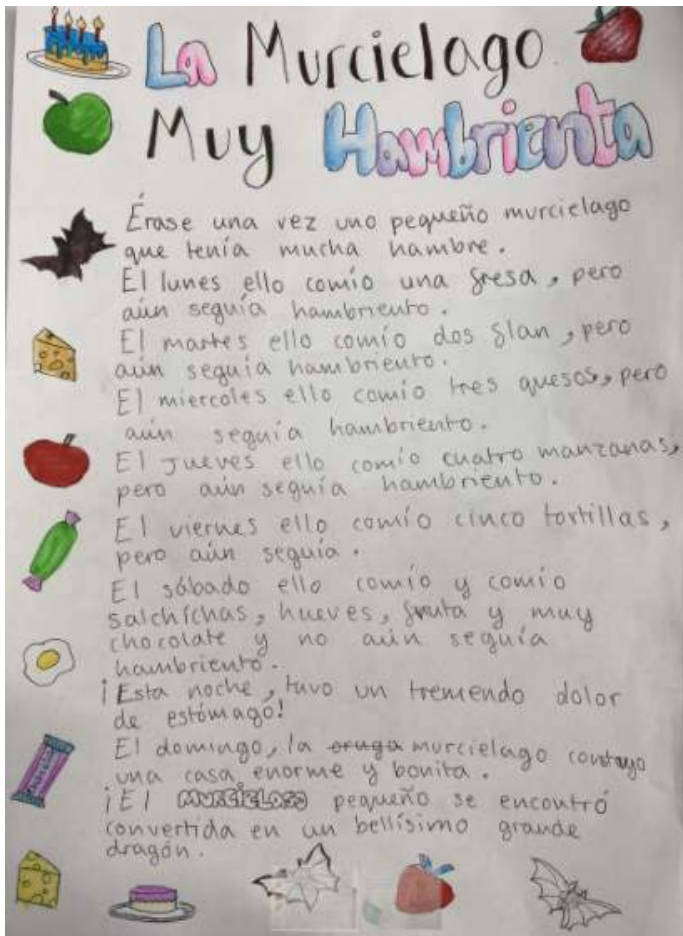 La Murcielago
Muy Hambrienta
Érase una vez uno pequeño murcielago
que tenía mucha hambre.
El lunes ello comío una fresa, pero
aún seguía hambriento.
El martes ello comío dos flan, pero
aún seguía hambriento.
El miercoles ello comío tres quesos, pero
aún seguía hambriento.
El Jueves ello comío cuatro manzanas,
pero aún seguía hambriento.
El viernes ello comío cinco tortillas,
pero aún seguía.
El sábado ello comío y comío
salchíchas, hueves, fruta y muy
chocolate y no aún seguía
hambriento.
¡Esta noche, tuvo un tremendo dolor
de estómago!
El domingo, la oruga murcielago
una casa enorme y bonita.
¡El MURCIELAGO pequeño se encontró
convertida en un bellísimo grande
dragón.